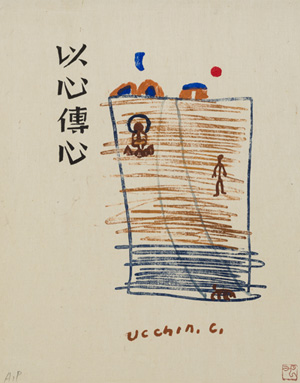 以心傳心
ucchin. c.
A.P